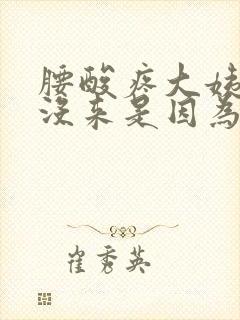 腰酸疼大姨
没来是因為
崔秀英